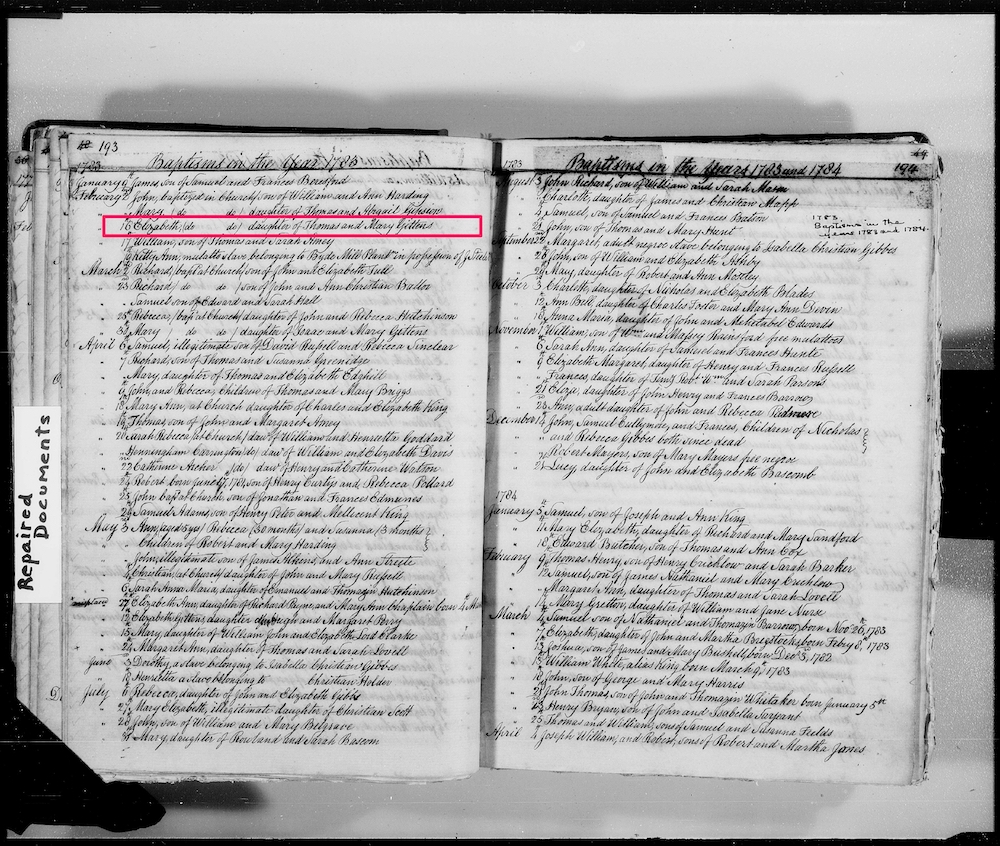 193
1783 Baptisms in the Year 1783
January 6 James, Son of Samuel and Frances Beresford
February 2 John, baptized in Church/Son of William and Ann Harding
" Mary, /do do/ daughter of Thomas and Abigail Gibson
16 Elizabeth /do do/ daughter of Thomas and Mary Gittens
17 William, Son of Thomas and Sarah Amey
Kitty Ann, mulatto slave belonging to Byde Mill Plant in possession of
March 2 Richard/bapt at Church/Son of John and Elizabeth
23 Richard/ do do /Son of John and Ann Christian Batton
" Samuel Son of Edward and Sarah Hall
25 Rebecca/bapt at Church/daughter of John and Rebecca Hutchinson
Mary /do do/ daughter of Isaac and Mary Gittens
April 6 Samuel, illegitimate Son of David Russell and Rebecca Sinclear
7 Richard, Son of Thomas and Susanna Greenidge
" Mary, daughter of Thomas and Elizabeth Edghill
John, and Rebecca, Children of Thomas and Mary Briggs
18 Mary Ann, at Church daughter of Charles and Elizabeth King
19 Thomas, Son of John and Margaret Amey
20 Sarah Rebecca/at Church/daur of William and Henrietta Goddard
" Henningham Carrington/do/ daur of William and Elizabeth Davis
22 Catherine Archer /do/ daur of Henry and Catherine Walton
Robert born June 17, Son of Henry Curty and Rebecca Pollard
25 John bapt at Church Son of Jonathan and Frances Edmunds
Samuel Adams, Son of Henry Peter and Mellecent King
May 3 Ann, (aged 5 yrs) Rebecca (30 months) and Susanna (3 months)
Children of Robert and Mary Harding
" John, illegitimate Son of James Hokens, and Ann Streete
4 Christian/at Church/daughter of John and Mary Russell
6 Sarah Anna Maria, daughter of Emanuel and Thomazin Hutchinson
Elizabeth Ann, daughter of Richard Payne, and Mary Ann Chaplain born
Elizabeth Gittens, daughter and Margaret Perry
15 Mary, daughter of William John and Elizabeth Lord Clarke
24 Margaret Ann, daughter of Thomas and Sarah Lovell
June 3 Dorothy, a slave belonging to Isabella Christian Gibbes
18 Henrietta a slave belonging to Christian Holder
July 6 Rebecca, daughter of John and Elizabeth Gibbs
Mary Elizabeth, illegitimate daughter of Christian Scott
John, Son of William and Mary Belgrave
Mary, daughter of Rowland and Sarah Bascom
Repaired
Documents
194
1783 Baptisms in the Years 1783 and 1784
August 3 John Richard, son of William and Sarah Mason
" Charlotte, daughter of James and Christian Mapp
4 Samuel, Son of Samuel and Frances Batton
John, Son of Thomas and Mary Hunt
September 22 Margaret, adult negroe slave belonging to Isabella Christian Gibbes
28 John, Son of William and Elizabeth Ashby
29 Mary, daughter of Robert and Ann Moseley
October 3 Charlotte, daughter of Nicholas and Elizabeth Blades
12 Ann Bell, daughter of Charles Foster and Mary Ann Devin
18 Anna Maria, daughter of John and Mehetabel Edwards
November 1 William, Son of Wm and Massey Rainsford free mulattoes
8 Sarah Ann, daughter of Samuel and Frances Hunte
9 Elizabeth Margaret, daughter of Henry and Frances Russell
" Frances, daughter of Robt. Wm and Sarah Parsons
21 Eliza, daughter of John Henry and Frances Barrow
23 Ann, adult daughter of John and Rebecca Padmore
December 14 John, Samuel Cullymore, and Frances, Children of Nicholas
and Rebecca Gibbes both since dead
" Robert Mayors, Son of Mary Mayers free negroe
Lucy daughter of John and Elizabeth Bascomb
1783
Baptisms in the
Years 1783 and 1784.
1784
January 5 Samuel, Son of Joseph and Ann King
11 Mary Elizabeth, daughter of Richard and Mary Sandford
18 Edward Butcher, Son of Thomas and Ann Cox
February 9 Thomas Henry Son of Henry Crichlow and Sarah Barker
12 Samuel, Son of James Nathaniel and Mary Crichlow
" Margaret Ann, daughter of Thomas and Sarah Lovell
" Mary Gretton, daughter of William and Jane Nurse
March 4 Samuel Son of Nathaniel and Thomazin Barrow, born Novr 26, 1783
7 Elizabeth, daughter of John and Martha Brestock, born Febry 8, 1783
13 Joshua, Son of James and Mary Bushell, born Decr 5, 1782
15 William White, alias King born March 9, 1783
18 John, Son of George and Mary Harris
21 John Thomas, Son of John and Thomazin Whitaker born January 5th
23 Henry Bryan, Son of John and Isabella Sarjeant
25 Thomas and William, Sons of Samuel and Susanna Fields
April 4 Joseph William, and Robert, Sons of Robert and Martha Jones